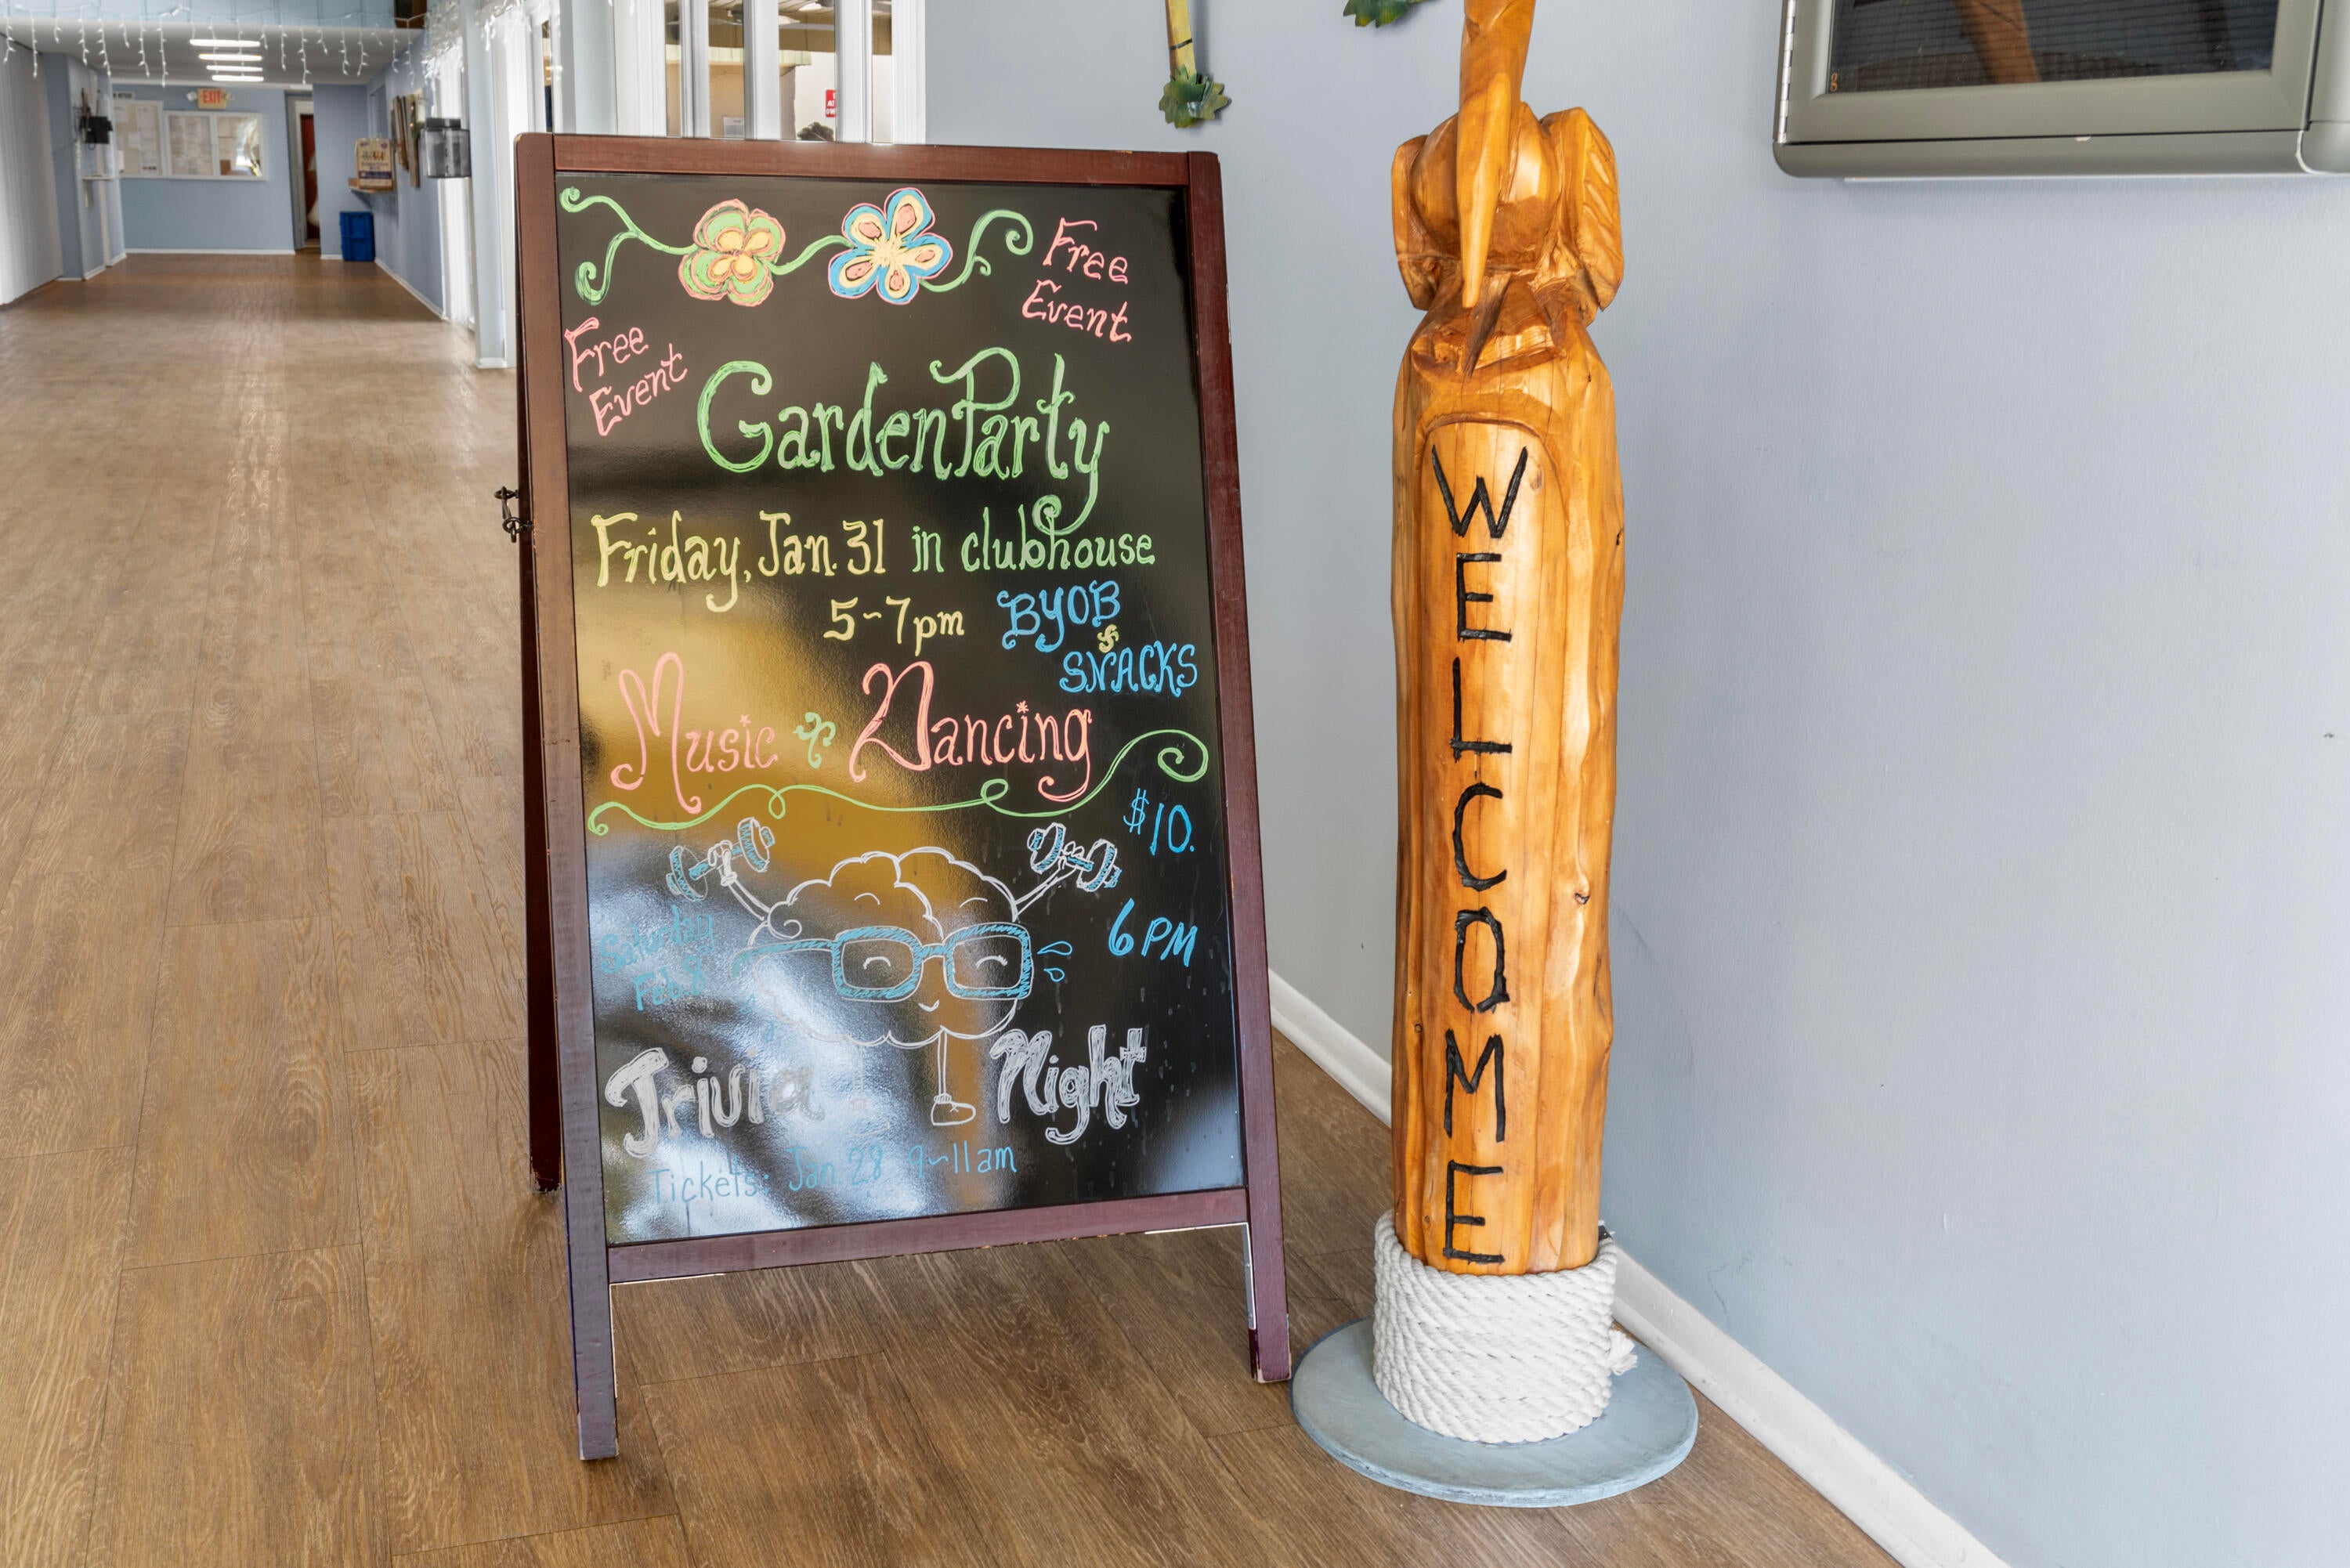 EXIT
Free
Event
Free
Event
Garden Party
Friday, Jan. 31 in clubhouse
5~7pm BYOB
&
SNACKS
Music & Dancing
$10.
6 PM
Saturday
Feb 8
Trivia Night
Tickets: Jan 28 9~11am
WELCOME